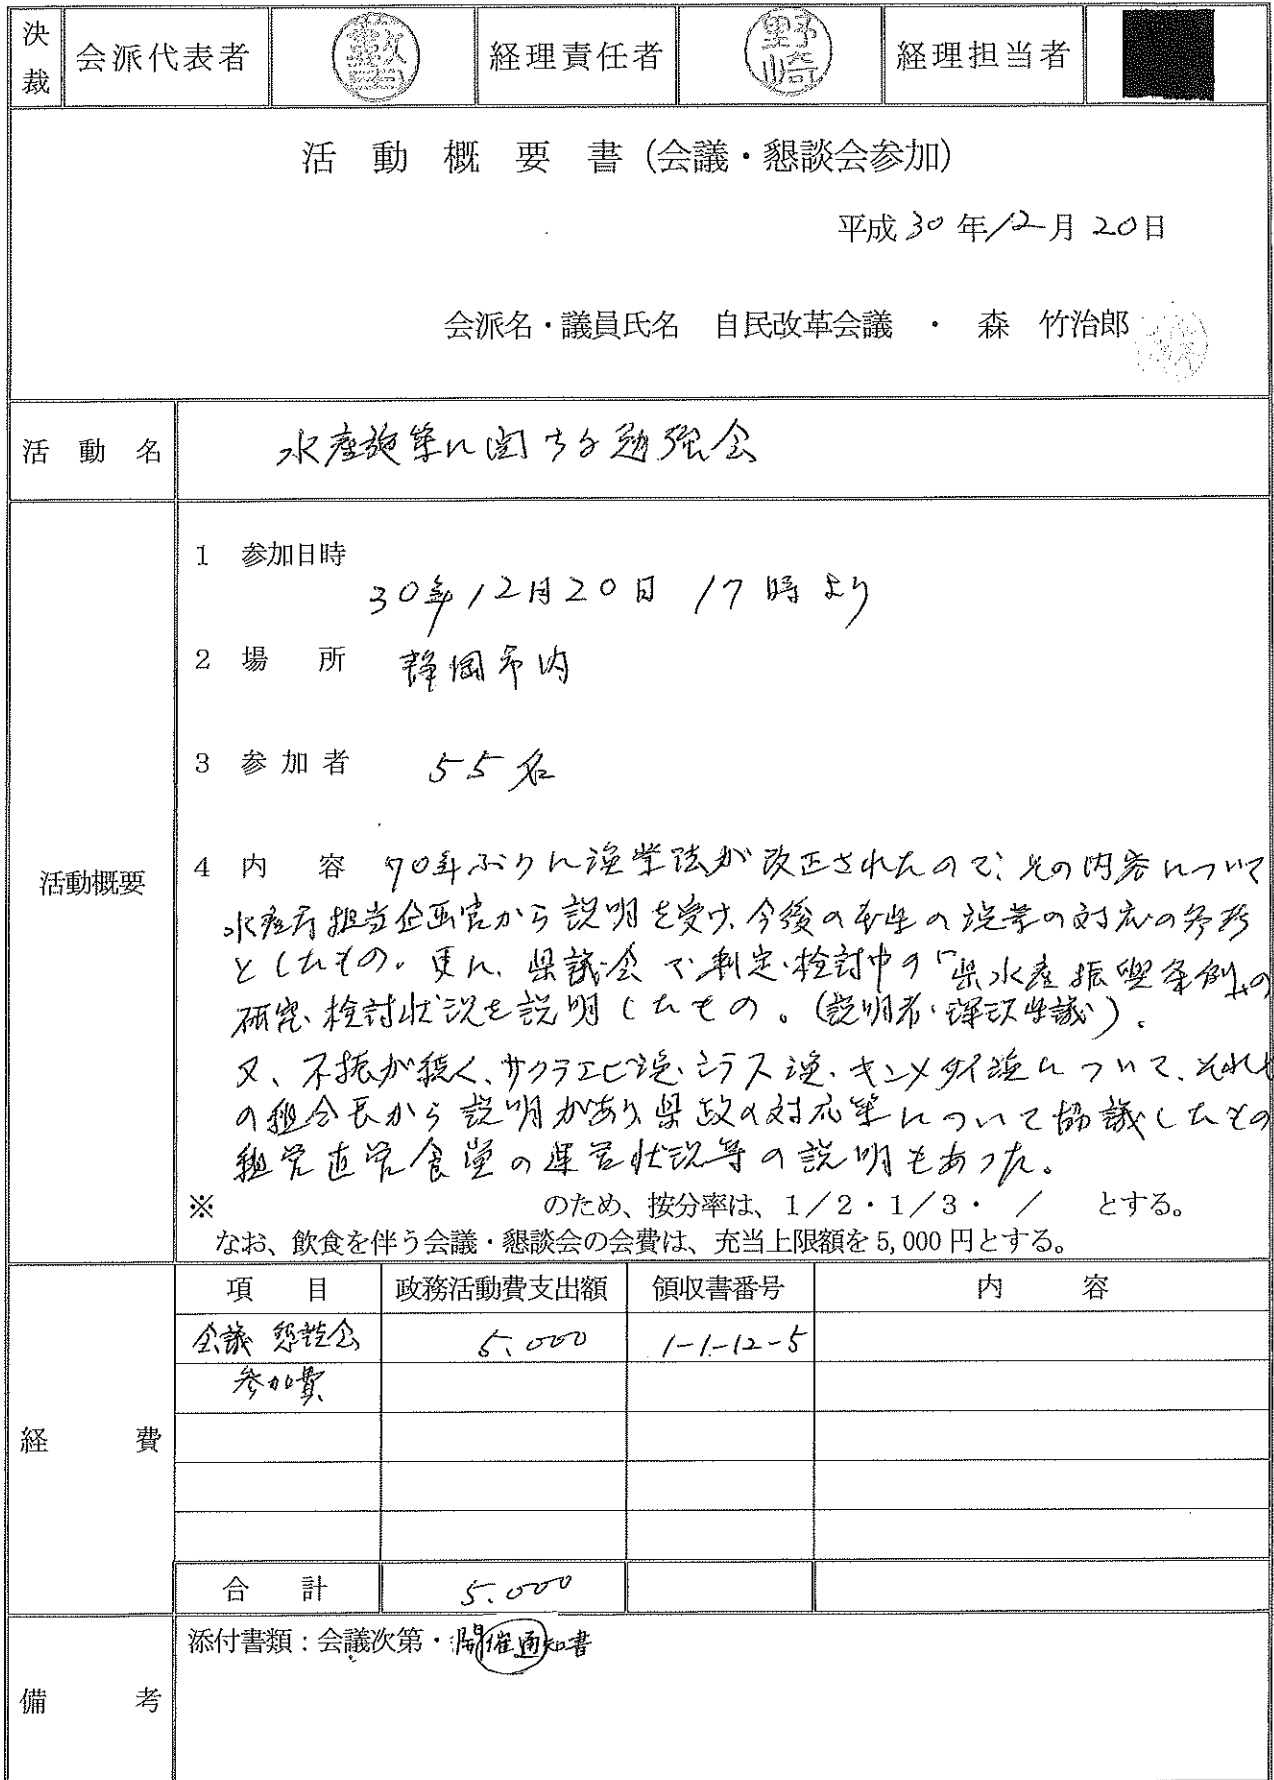 決裁 会派代表者 経理責任者 野崎 経理担当者
活動概要書（会議・懇談会参加）
平成30年12月20日
会派名・議員氏名 自民改革会議 ・ 森 竹治郎
活動名 水産施策に関する勉強会
活動概要
1 参加日時
30年12月20日 17時より
2 場所 静岡市内
3 参加者 55名
4 内容 70年ぶりに漁業法が改正されたので、その内容について
水産庁担当企画官から説明を受け、今後の本県の漁業の対応の参考
としたもの。更に、県議会で制定・検討中の「県水産振興条例」の
研究、検討状況を説明したもの。（説明者・県議）。
又、不振が続く、サクラエビ漁、シラス漁、キンメダイ漁について、それぞれ
の組合長から説明があり、県政の対応策について協議したもの
組合直営食堂の運営状況等の説明もあった。
※ のため、按分率は、1／2・1／3・ ／ とする。
なお、飲食を伴う会議・懇談会の会費は、充当上限額を5,000円とする。
経費
項目 政務活動費支出額 領収書番号 内容
会議 懇談会 5,000 1-1-12-5
参加費
合計 5,000
備考
添付書類：会議次第・開催通知書